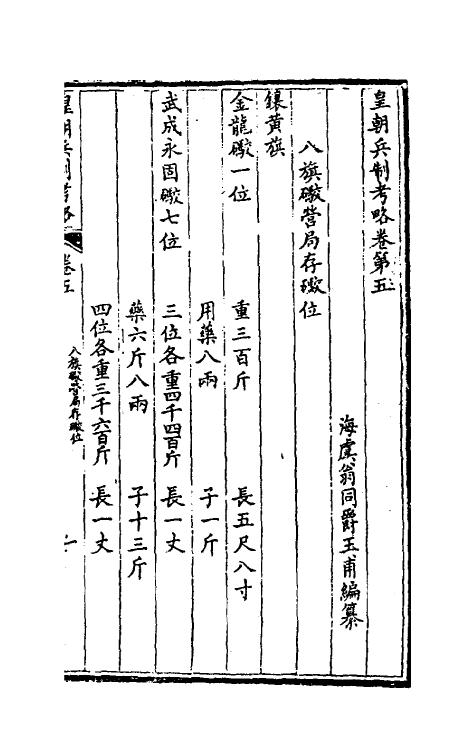 皇朝兵制考略卷第五
海虞翁同爵玉甫編纂
八旗礮營局存礮位
鑲黃旗
金龍礮一位 重三百斤 長五尺八寸
用藥八兩 子一斤
武成永固礮七位 三位各重四千四百斤 長一丈
藥六斤八兩 子十三斤
四位各重三千六百斤 長一丈
皇朝兵制考略 卷五 八旗礮營局存礮位 一